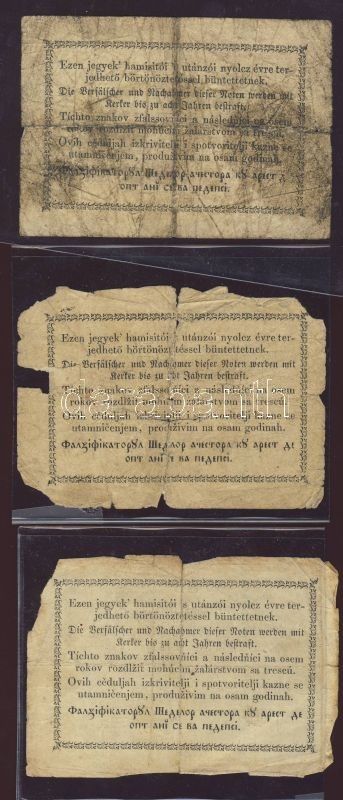 Ezen jegyek' hamisítói 's utánzói nyolcz évre ter-
jedhető börtönöztetéssel büntettetnek.
Die Verfälscher und Nachahmer dieser Noten werden mit
Kerker bis zu acht Jahren bestraft.
Tíchto znakov zfalssovníci a následníci na osem
rokov rozdžit mohúcím žalárstvom sa trescú.
Ovih céduljah izkrivitelji i spotvoritelji kazne se
utamničenjem, produživim na osam godinah.
Фалціфікаторул Шеделор ачестора ку арест де
опт ані се ва педепсі.
Ezen jegyek' hamisítói 's utánzói nyolcz évre ter-
jedhető börtönöztetéssel büntettetnek.
Die Verfälscher und Nachahmer dieser Noten werden mit
Kerker bis zu acht Jahren bestraft.
Tíchto znakov zfalssovníci z následníci na osem
rokov rozdžit mohúcím žalárstvom sa trescú.
Ovih céduljah izkrivitelji i spotvoritelji kazne se
utamničenjem, produživim na osam godinah.
Фалціфікаторул Шеделор ачестора ку арест де
опт ані се ва педепсі.
Ezen jegyek' hamisítói 's utánzói nyolcz évre ter-
jedhető börtönöztetéssel büntettetnek.
Die Verfälscher und Nachahmer dieser Noten werden mit
Kerker bis zu acht Jahren bestraft.
Tíchto znakov zfalssovníci a následníci na osem
rokov rozdžit mohúcím žalárstvom sa trescú.
Ovih céduljah izkrivitelji i spotvoritelji kazne se
utamničenjem, produživim na osam godinah.
Фалціфікаторул Шеделор ачестора ку арест де
опт ані се ва педепсі.